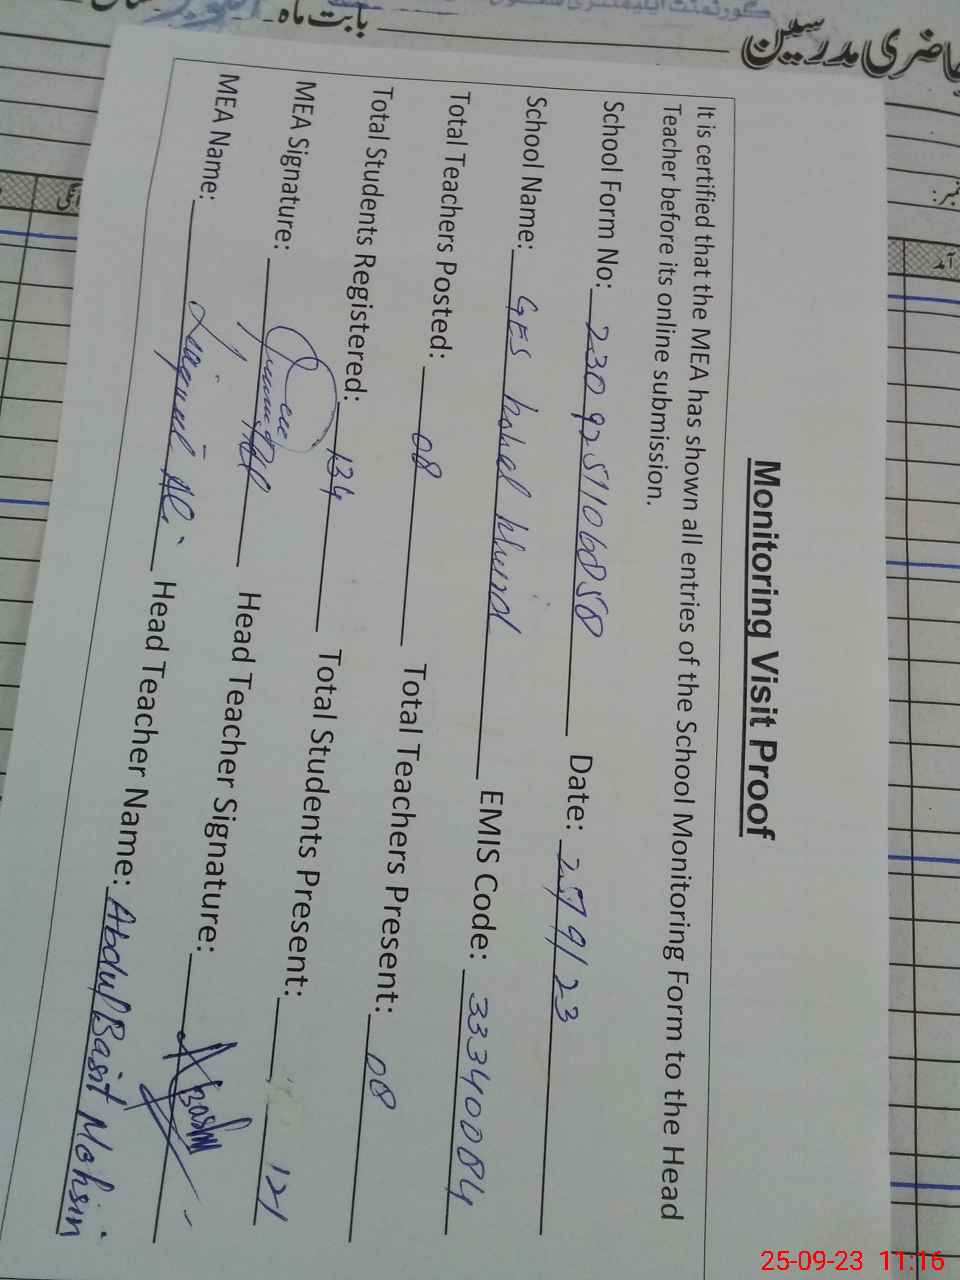 حاضری مدرسین
بابت ماہ
Monitoring Visit Proof
It is certified that the MEA has shown all entries of the School Monitoring Form to the Head
Teacher before its online submission.
School Form No: 2309251106058 Date: 25/9/23
School Name: GES Kohel Khurd EMIS Code: 33340084
Total Teachers Posted: 08 Total Teachers Present: 08
Total Students Registered: 134 Total Students Present: 121
MEA Signature: Head Teacher Signature: ABasit
MEA Name: Liaquat Ali Head Teacher Name: Abdul Basit Mohsin
25-09-23 11:16